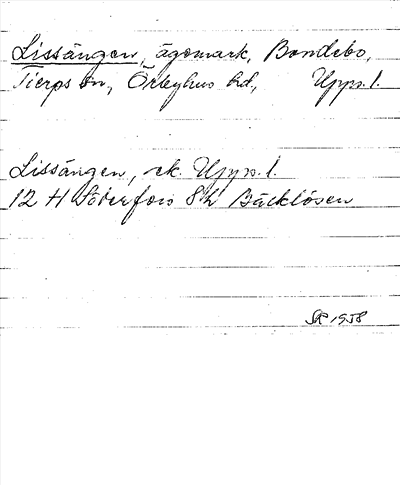 Lissängen, ägomark, Bondebo,
Tierps sn, Örbyhus hd, Upps. l.
Lissängen, ek. Upps. l.
12 H Söderfors SV Bäcklösen
SR 1958